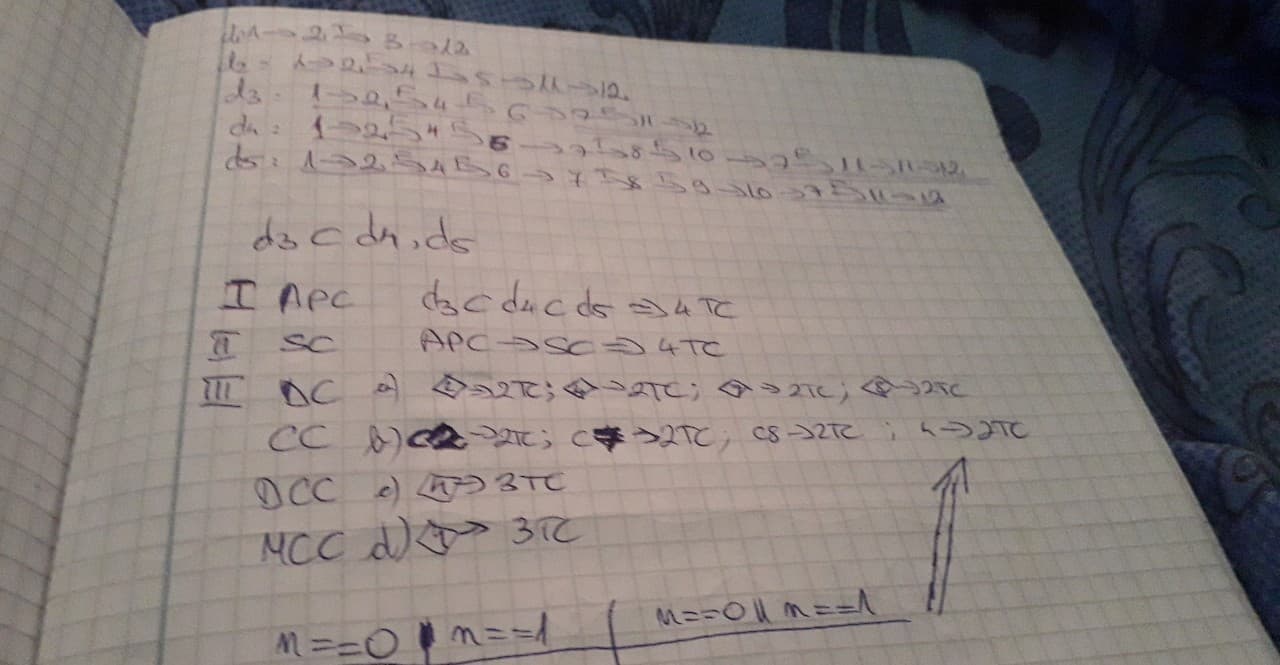 d1 → 2 I→ 3 → 12
d2: 1 → 2 F→ 4 I→ 5 → 11 → 12
d3: 1 → 2 F→ 4 F→ 6 → 7 F→ 11 → 12
d4: 1 → 2 F→ 4 F→ 6 → 7 I→ 8 F→ 10 → 7 F→ 11 → 11 → 12
d5: 1 → 2 F→ 4 F→ 6 → 7 I→ 8 F→ 9 → 10 → 7 F→ 11 → 12
d3 ⊂ d4, d5
I APC d3 ⊂ d4 ⊂ d5 ⇒ 4 TC
II SC APC → SC ⇒ 4 TC
III DC a) → 2TC; → 2TC; → 2TC; → 2TC
CC b) C2 → 2TC; C7 → 2TC; C8 → 2TC; 4 → 2TC
DCC c) → 3TC
MCC d) → 3TC
n==0 n==1 n==0 || n==1